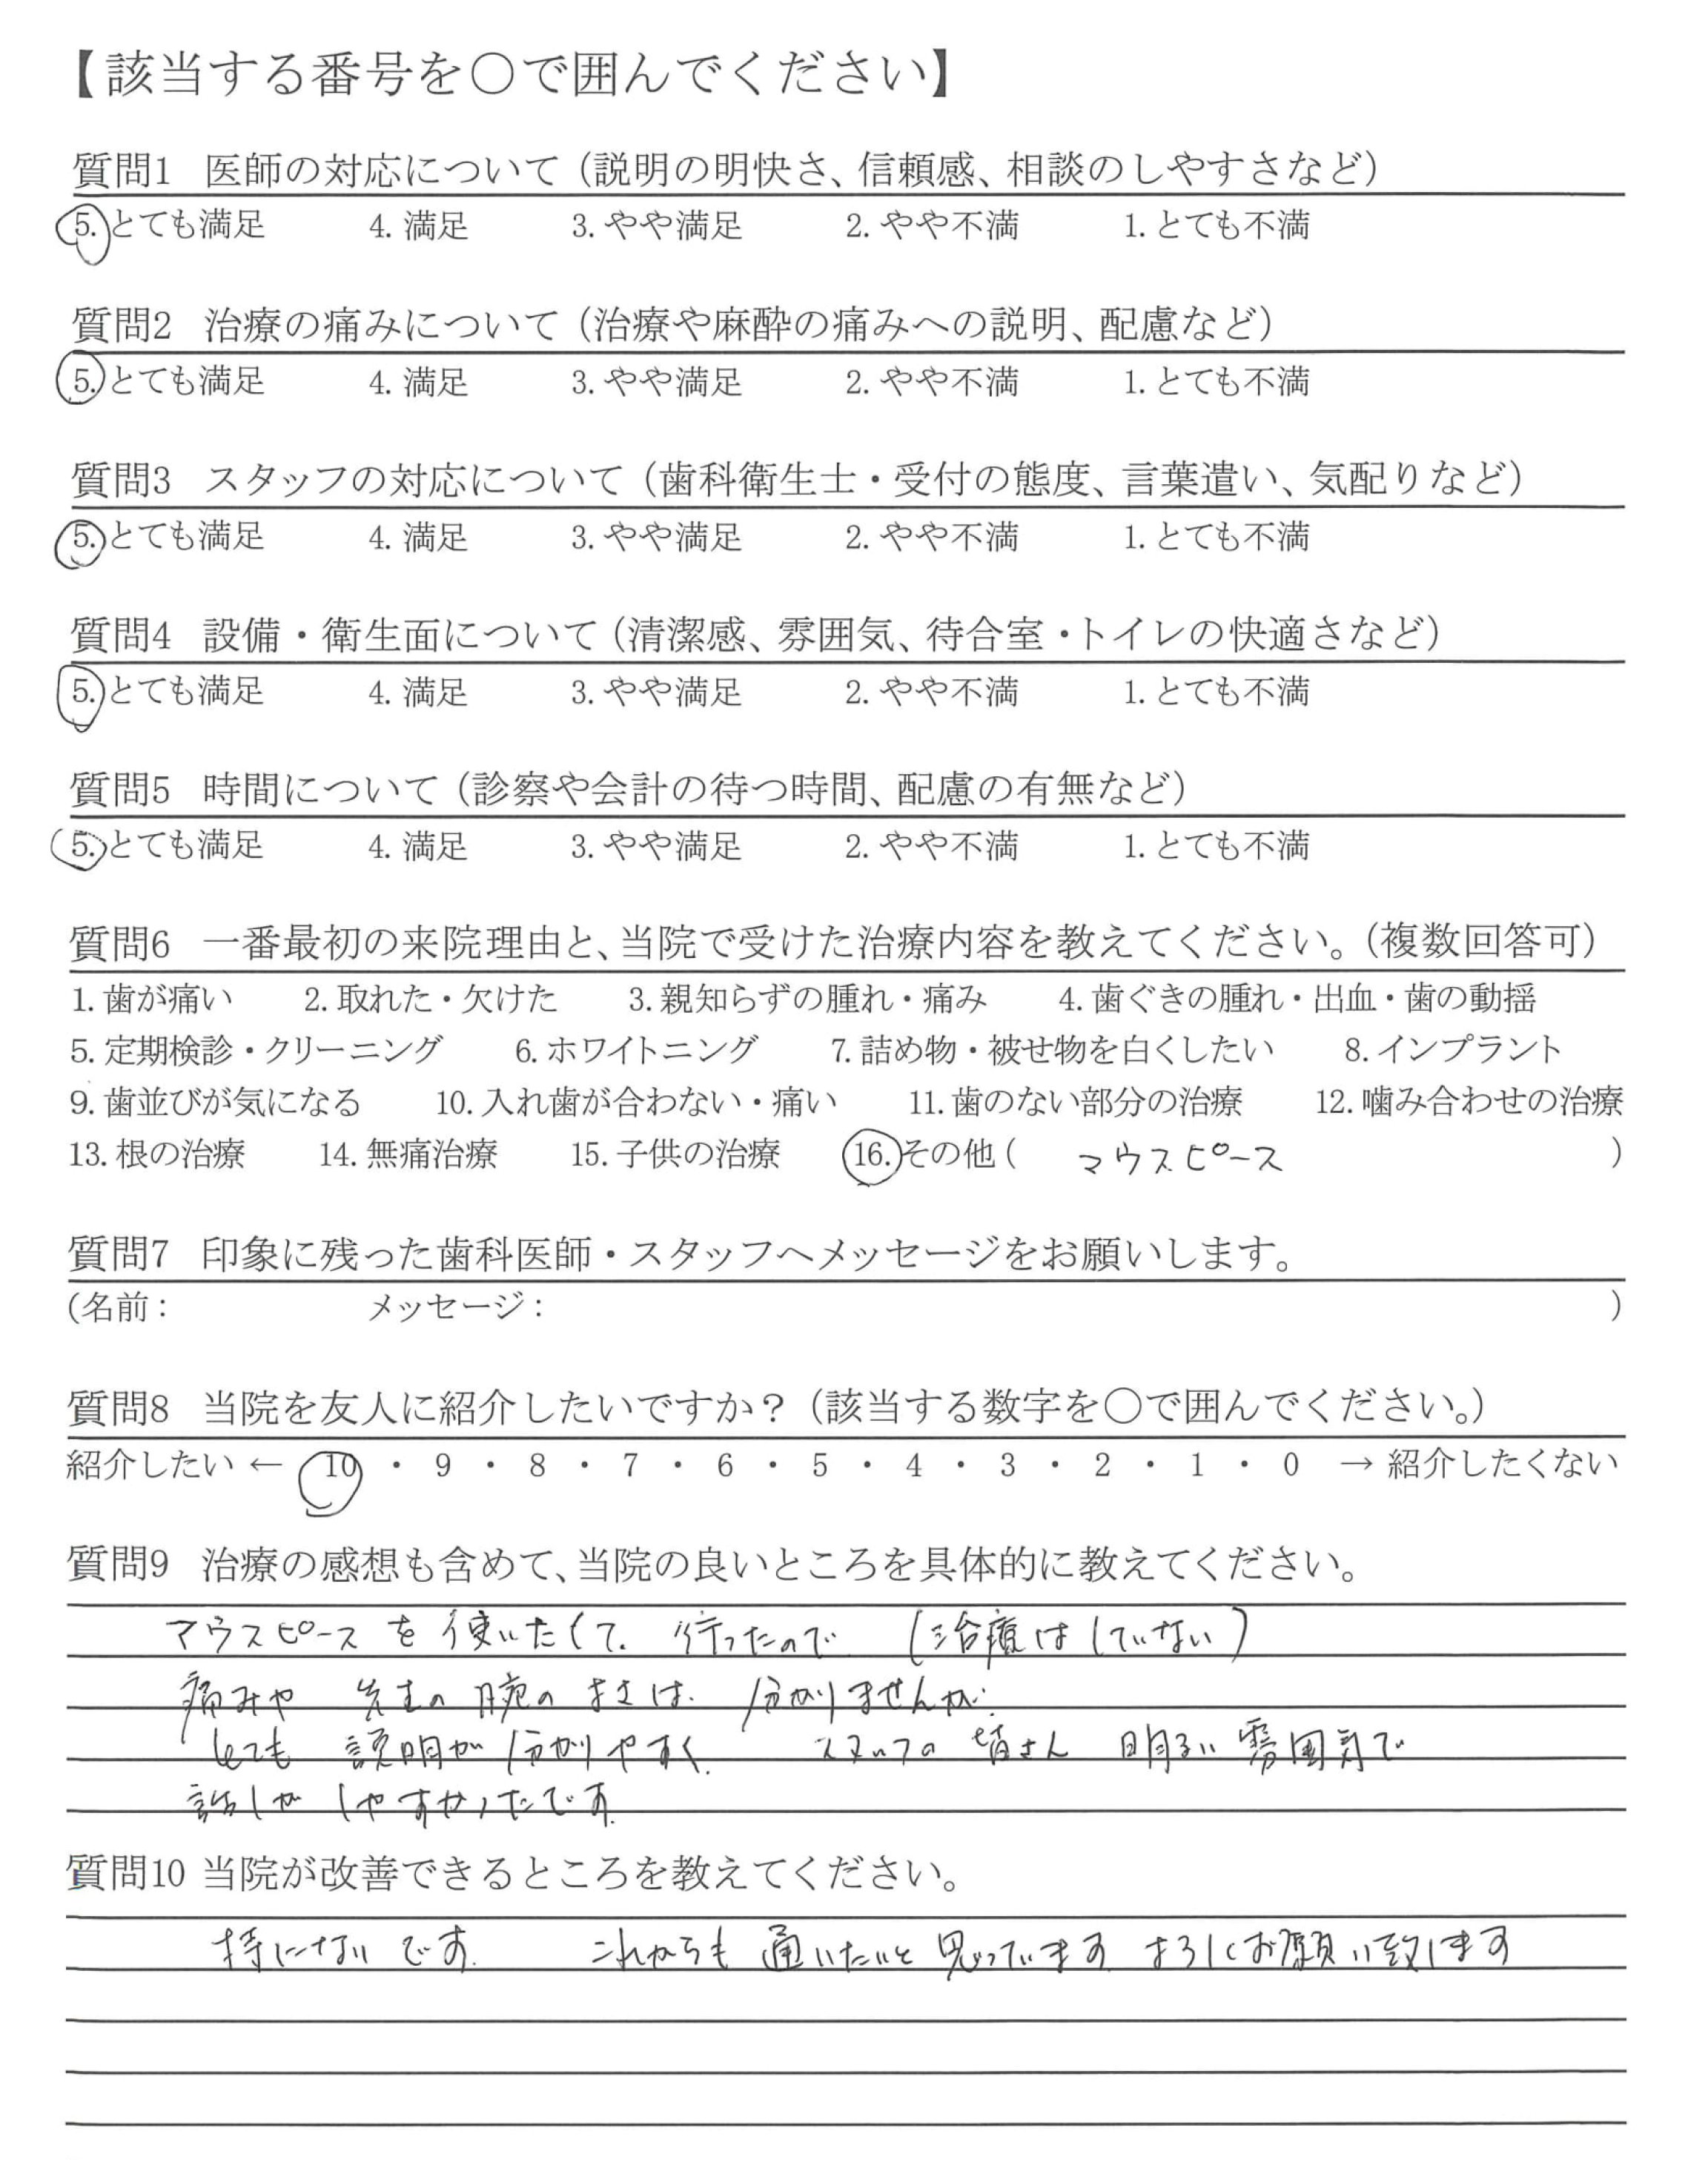 【該当する番号を○で囲んでください】
質問1 医師の対応について（説明の明快さ、信頼感、相談のしやすさなど）
5. とても満足 4. 満足 3. やや満足 2. やや不満 1. とても不満
質問2 治療の痛みについて（治療や麻酔の痛みへの説明、配慮など）
5. とても満足 4. 満足 3. やや満足 2. やや不満 1. とても不満
質問3 スタッフの対応について（歯科衛生士・受付の態度、言葉遣い、気配りなど）
5. とても満足 4. 満足 3. やや満足 2. やや不満 1. とても不満
質問4 設備・衛生面について（清潔感、雰囲気、待合室・トイレの快適さなど）
5. とても満足 4. 満足 3. やや満足 2. やや不満 1. とても不満
質問5 時間について（診察や会計の待つ時間、配慮の有無など）
5. とても満足 4. 満足 3. やや満足 2. やや不満 1. とても不満
質問6 一番最初の来院理由と、当院で受けた治療内容を教えてください。（複数回答可）
1. 歯が痛い 2. 取れた・欠けた 3. 親知らずの腫れ・痛み 4. 歯ぐきの腫れ・出血・歯の動揺
5. 定期検診・クリーニング 6. ホワイトニング 7. 詰め物・被せ物を白くしたい 8. インプラント
9. 歯並びが気になる 10. 入れ歯が合わない・痛い 11. 歯のない部分の治療 12. 噛み合わせの治療
13. 根の治療 14. 無痛治療 15. 子供の治療 16. その他（ マウスピース ）
質問7 印象に残った歯科医師・スタッフへメッセージをお願いします。
（名前： メッセージ： ）
質問8 当院を友人に紹介したいですか？（該当する数字を○で囲んでください。）
紹介したい ← 10 ・ 9 ・ 8 ・ 7 ・ 6 ・ 5 ・ 4 ・ 3 ・ 2 ・ 1 ・ 0 → 紹介したくない
質問9 治療の感想も含めて、当院の良いところを具体的に教えてください。
マウスピースを使いたくて、行ったので （治療はしていない）
痛みや 先生の腕のよさは、分かりませんが、
とても 説明が分かりやすく、 スタッフの皆さん 明るい雰囲気で
話しが しやすかったです。
質問10 当院が改善できるところを教えてください。
特にないです。 これからも 通いたいと思っています よろしくお願い致します